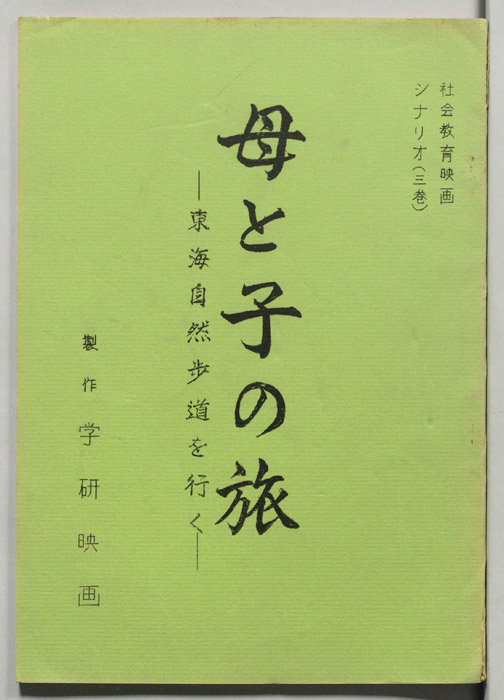 社会教育映画
シナリオ(三巻)
母と子の旅
―東海自然歩道を行く―
製作 学研映画